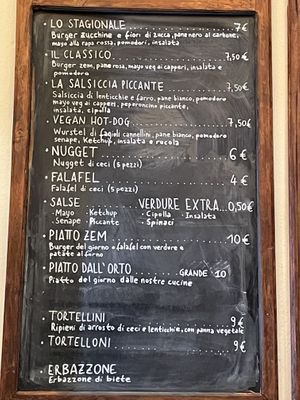 • LO STAGIONALE ........ 7€
Burger zucchine e fiori di zucca, pane nero al carbone,
mayo alla rapa rossa, pomodori, insalata
• IL CLASSICO ........ 7,50€
Burger zem, pane rosa, mayo veg ai capperi, insalata e
pomodoro
• LA SALSICCIA PICCANTE ..... 7,50€
Salsiccia di lenticchie e farro, pane bianco, pomodoro
mayo veg ai capperi, peperoncino piccante,
insalata, cipolla
• VEGAN HOT-DOG ........ 7,50€
Wurstel di fagioli cannellini, pane bianco, pomodoro
senape, Ketchup, insalata e rucola
• NUGGET ........ 6€
Nugget di ceci (5 pezzi)
• FALAFEL ........ 4€
Falafel di ceci (5 pezzi)
• SALSE VERDURE EXTRA... 0,50€
• Mayo • Ketchup • Cipolla • Insalata
• Senape • Piccante • Spinaci
• PIATTO ZEM ........ 10€
Burger del giorno e falafel con verdure e
patate al forno
• PIATTO DALL'ORTO GRANDE 10
Piatto del giorno dalle nostre cucine
• TORTELLINI ........ 9€
Ripieni di arrosto di ceci e lenticchie, con panna vegetale
• TORTELLONI ........ 9€
• ERBAZZONE
Erbazzone di biete